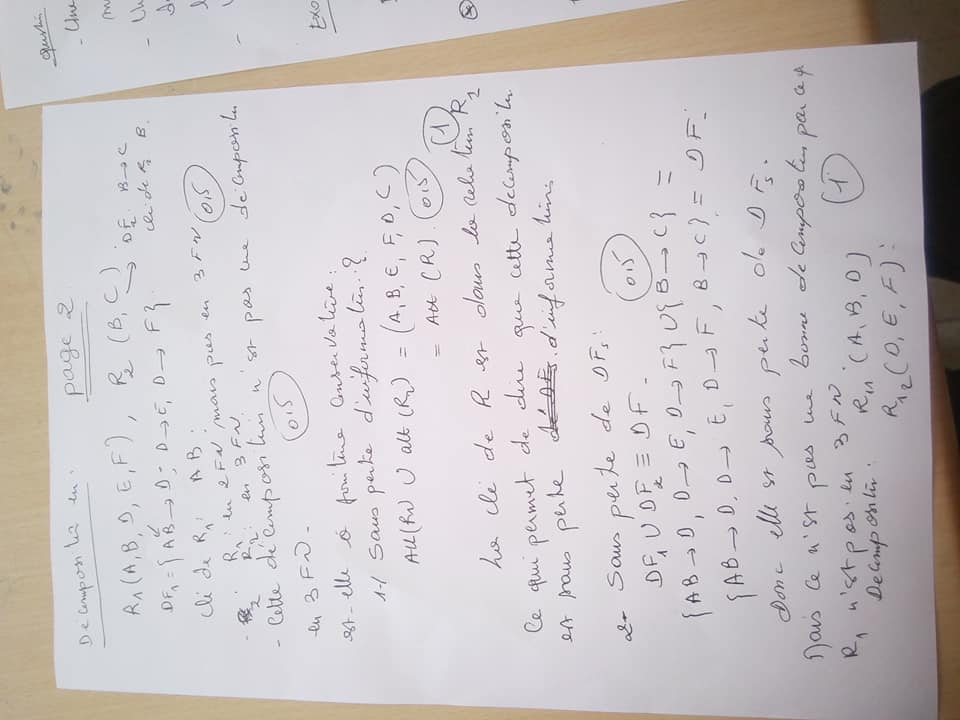 page 2
Décomposition en :
R1 (A, B, D, E, F) , R2 (B, C) → DF2 : B → C
clé de R2 B.
DF1 = { AB → D, D → E, D → F }.
Clé de R1 : AB.
R1 : en 2FN mais pas en 3FN (0,5)
R2 : en 3FN
- Cette décomposition n'est pas une décomposition
en 3FN. (0,5)
est-elle conservative :
1-/ Sans perte d'information : ?
Att(R1) ∪ att(R2) = (A, B, E, F, D, C)
= Att (R). (0,5) (1)
La clé de R est dans la relation R2
Ce qui permet de dire que cette décomposition
est sans perte d'informations
2- Sans perte de DFs : (0,5)
DF1 ∪ DF2 ≡ DF.
{AB → D, D → E, D → F} ∪ {B → C} =
{AB → D, D → E, D → F, B → C} = DF.
Donc elle est sans perte de DFs.
Mais ce n'est pas une bonne décomposition parce q
R1 n'est pas en 3FN. R11 (A, B, D) (1)
Décomposition. R12 (D, E, F).
question
- Une
- Un
Exo